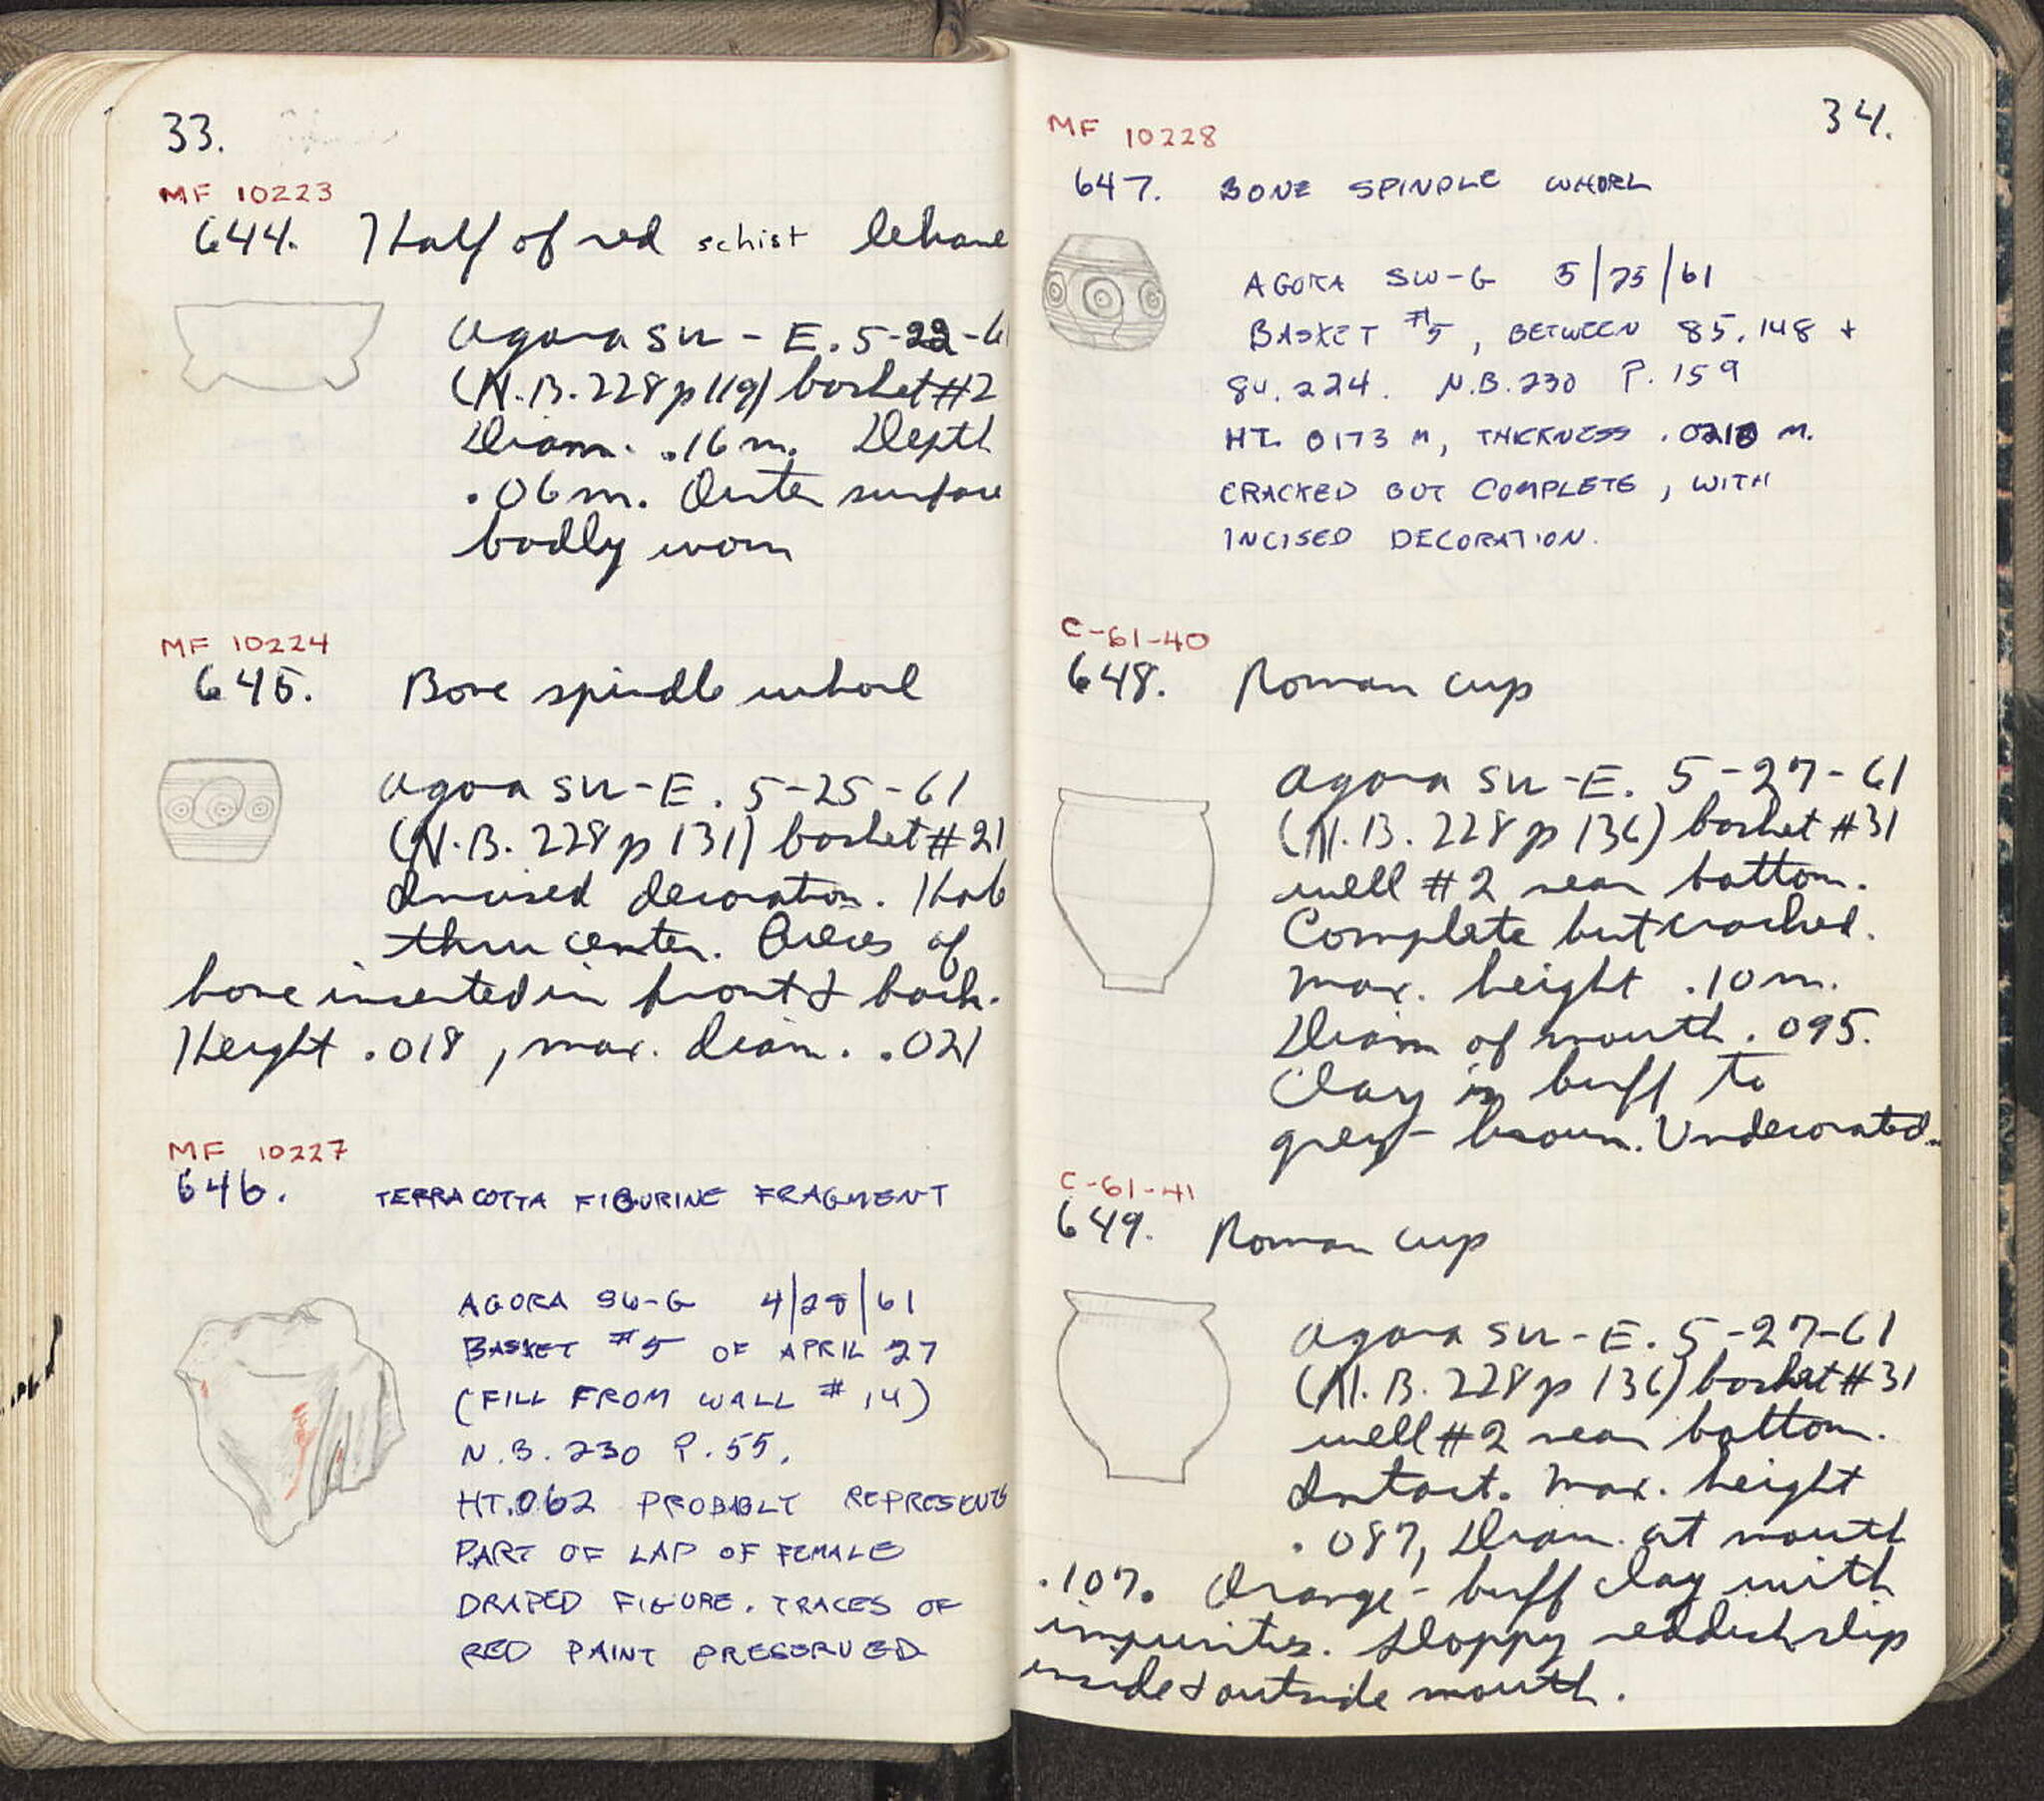 33.
MF 10223
644. Half of red schist lekane
Agora SW - E. 5-22-6
(N.B. 228 p 119) basket #2
Diam. .16 m. Depth
.06 m. Outer surface
badly worn
MF 10224
645. Bone spindle whorl
Agora SW - E. 5-25-61
(N.B. 228 p 131) basket #21
Incised decoration. Hole
thru center. Pieces of
bone inserted in front & back.
Height .018, max. diam. .021
MF 10227
646. TERRACOTTA FIGURINE FRAGMENT
AGORA SW-G 4/28/61
BASKET #5 OF APRIL 27
(FILL FROM WALL # 14)
N.B. 230 P. 55.
HT. 062 PROBABLY REPRESENTS
PART OF LAP OF FEMALE
DRAPED FIGURE. TRACES OF
RED PAINT PRESERVED
34.
MF 10228
647. BONE SPINDLE WHORL
AGORA SW-G 5/25/61
BASKET #5, BETWEEN 85.148 +
84.224. N.B. 230 P. 159
HT. 0173 M, THICKNESS .0210 M.
CRACKED BUT COMPLETE, WITH
INCISED DECORATION.
C-61-40
648. Roman cup
Agora SW - E. 5-27-61
(N.B. 228 p 136) basket #31
well #2 near bottom.
Complete but cracked.
Max. height .10 m.
Diam of mouth .095.
Clay is buff to
grey-brown. Undecorated.
C-61-41
649. Roman cup
Agora SW - E. 5-27-61
(N.B. 228 p 136) basket #31
well #2 near bottom.
Intact. Max. height
.087, Diam. at mouth
.107. Orange-buff clay with
impurities. Sloppy reddish slip
inside & outside mouth.